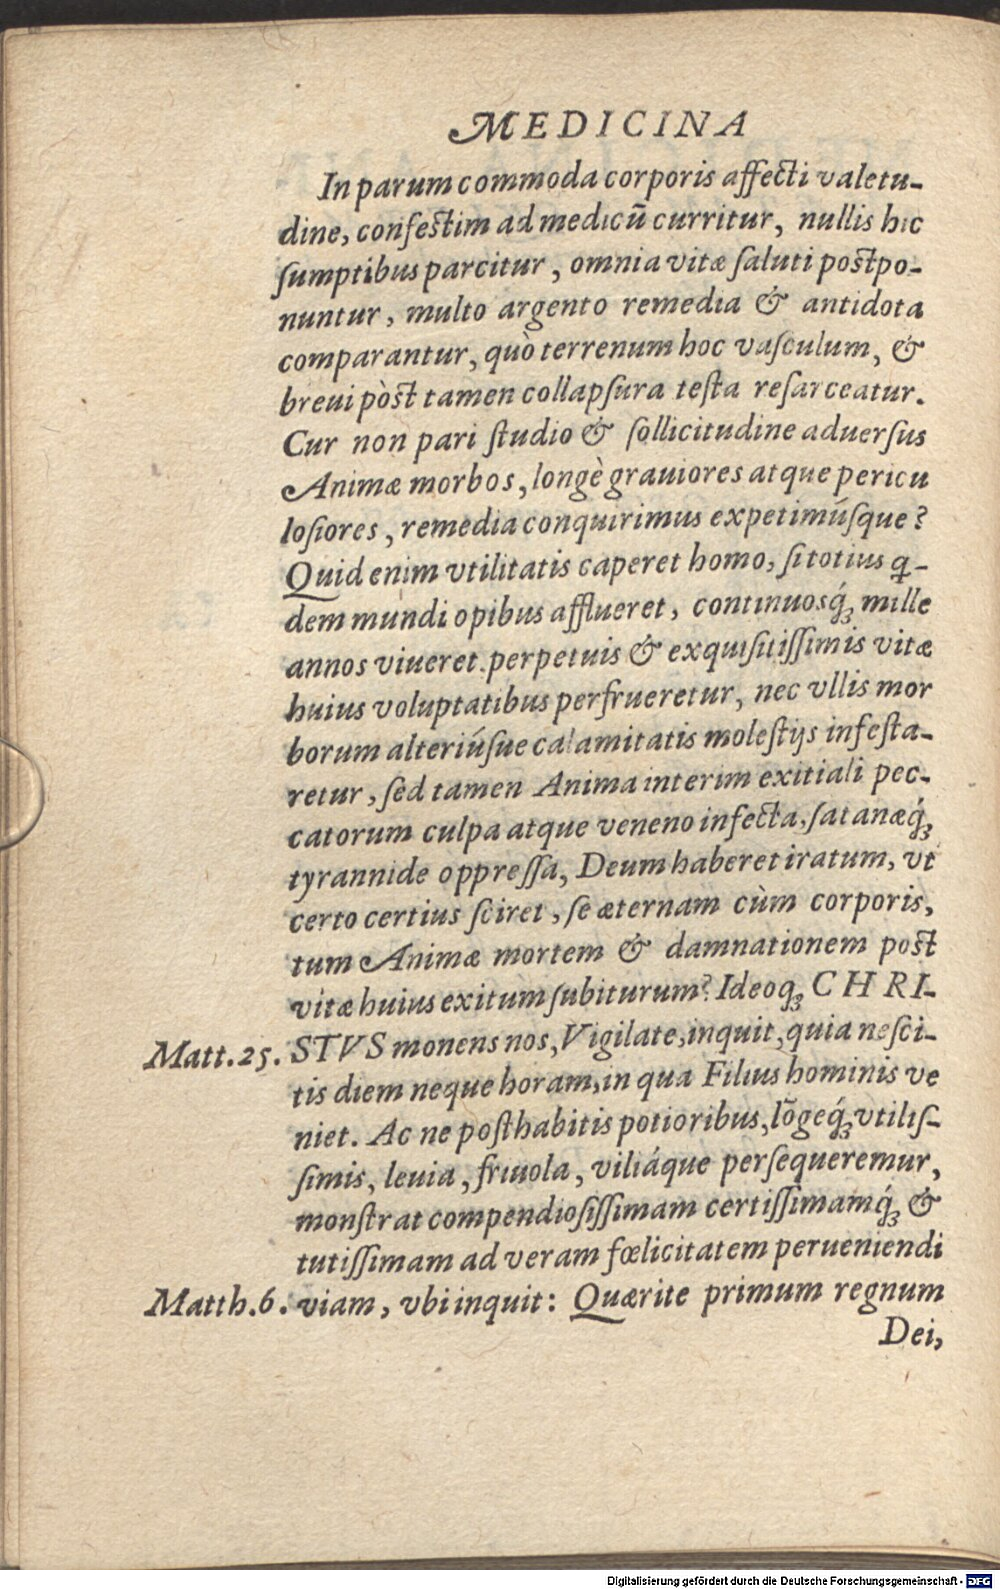 MEDICINA
In parum commoda corporis affecti valetu-
dine, confestim ad medicū curritur, nullis hic
sumptibus parcitur, omnia vitæ saluti postpo-
nuntur, multo argento remedia & antidota
comparantur, quò terrenum hoc vasculum, &
breui pòst tamen collapsura testa resarceatur.
Cur non pari studio & sollicitudine aduersus
Animæ morbos, longè grauiores atque pericu
losiores, remedia conquirimus expetimúsque?
Quid enim vtilitatis caperet homo, si totius q-
dem mundi opibus afflueret, continuosq́ꝫ mille
annos viueret perpetuis & exquisitissimis vitæ
huius voluptatibus perfrueretur, nec vllis mor
borum alteriúsue calamitatis molestijs infesta-
retur, sed tamen Anima interim exitiali pec-
catorum culpa atque veneno infecta, satanæq́ꝫ
tyrannide oppressa, Deum haberet iratum, vt
certo certius sciret, se æternam cùm corporis,
tum Animæ mortem & damnationem post
vitæ huius exitum subiturum? Ideoqꝫ CHRI-
Matt.25. STVS monens nos, Vigilate, inquit, quia nesci-
tis diem neque horam, in qua Filius hominis ve
niet. Ac ne posthabitis potioribus, lōgeq́ꝫ vtilis-
simis, leuia, friuola, viliáque persequeremur,
monstrat compendiosissimam certissimamq́ꝫ &
tutissimam ad veram fœlicitatem perueniendi
Matth.6. viam, vbi inquit: Quærite primum regnum
Dei,
Digitalisierung gefördert durch die Deutsche Forschungsgemeinschaft - DFG